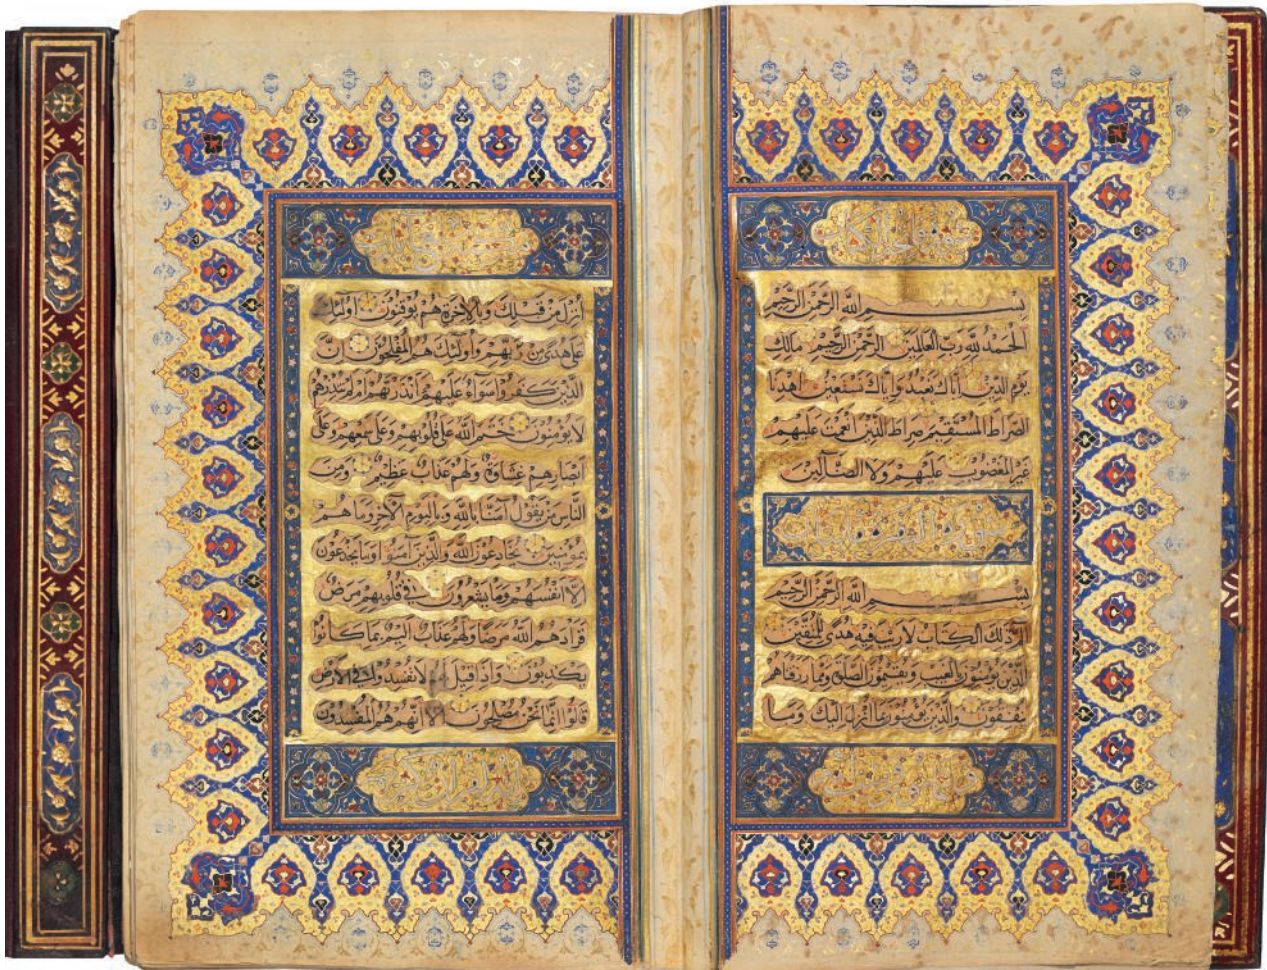 بسم الله الرحمن الرحيم
الحمد لله رب العالمين الرحمن الرحيم مالك
يوم الدين اياك نعبد واياك نستعين اهدنا
الصراط المستقيم صراط الذين انعمت عليهم
غير المغضوب عليهم ولا الضآلين
بسم الله الرحمن الرحيم
الم ذلك الكتاب لا ريب فيه هدى للمتقين
الذين يؤمنون بالغيب ويقيمون الصلوة ومما رزقناهم
ينفقون والذين يؤمنون بما انزل اليك وما
انزل من قبلك وبالاخرة هم يوقنون اولئك
على هدى من ربهم واولئك هم المفلحون ان
الذين كفروا سواء عليهم ءانذرتهم ام لم تنذرهم
لا يؤمنون ختم الله على قلوبهم وعلى سمعهم وعلى
ابصارهم غشاوة ولهم عذاب عظيم ومن
الناس من يقول آمنا بالله وباليوم الآخر وما هم
بمؤمنين يخادعون الله والذين آمنوا وما يخدعون
الا انفسهم وما يشعرون في قلوبهم مرض
فزادهم الله مرضا ولهم عذاب اليم بما كانوا
يكذبون واذا قيل لهم لا تفسدوا في الارض
قالوا انما نحن مصلحون الا انهم هم المفسدون